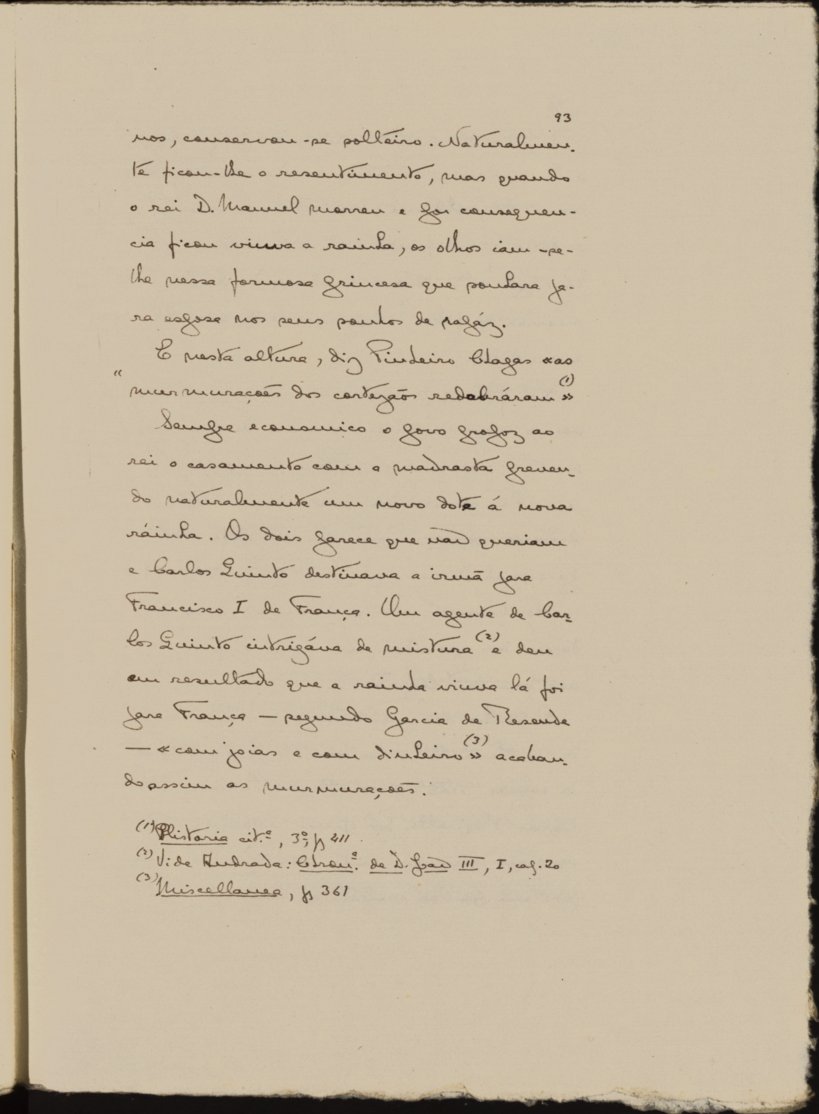 93
nos, conservou-se solteiro. Naturalmen-
te ficou-lhe o resentimento, mas quando
o rei D. Manuel morreu e por consequen-
cia ficou viuva a rainha, os olhos iam-se-
lhe nessa formosa princesa que sonhara pa-
ra esposa nos seus sonhos de rapáz.
E nesta altura, diz Pinheiro Chagas «as
"murmurações dos cortezãos redobráram (1)»
Sempre economico o povo propoz ao
rei o casamento com a madrasta preven-
do naturalmente um novo dote á nova
ráinha. Os dois parece que não queriam
e Carlos Quinto destinava a irmã para
Francisco I de França. Um agente de Car-
los Quinto intrigáva de mistura (2) e deu
em resultado que a rainha viuva lá foi
para França — segundo Garcia de Resende
— «com joias e com dinheiro (3)» acaban-
do assim as murmurações.
(1) Historia cit.ª, 3º, p 411
(2) Vide Andrada: Chron.ª de D. João III, I, cap. 20
(3) Miscellanea, p 361